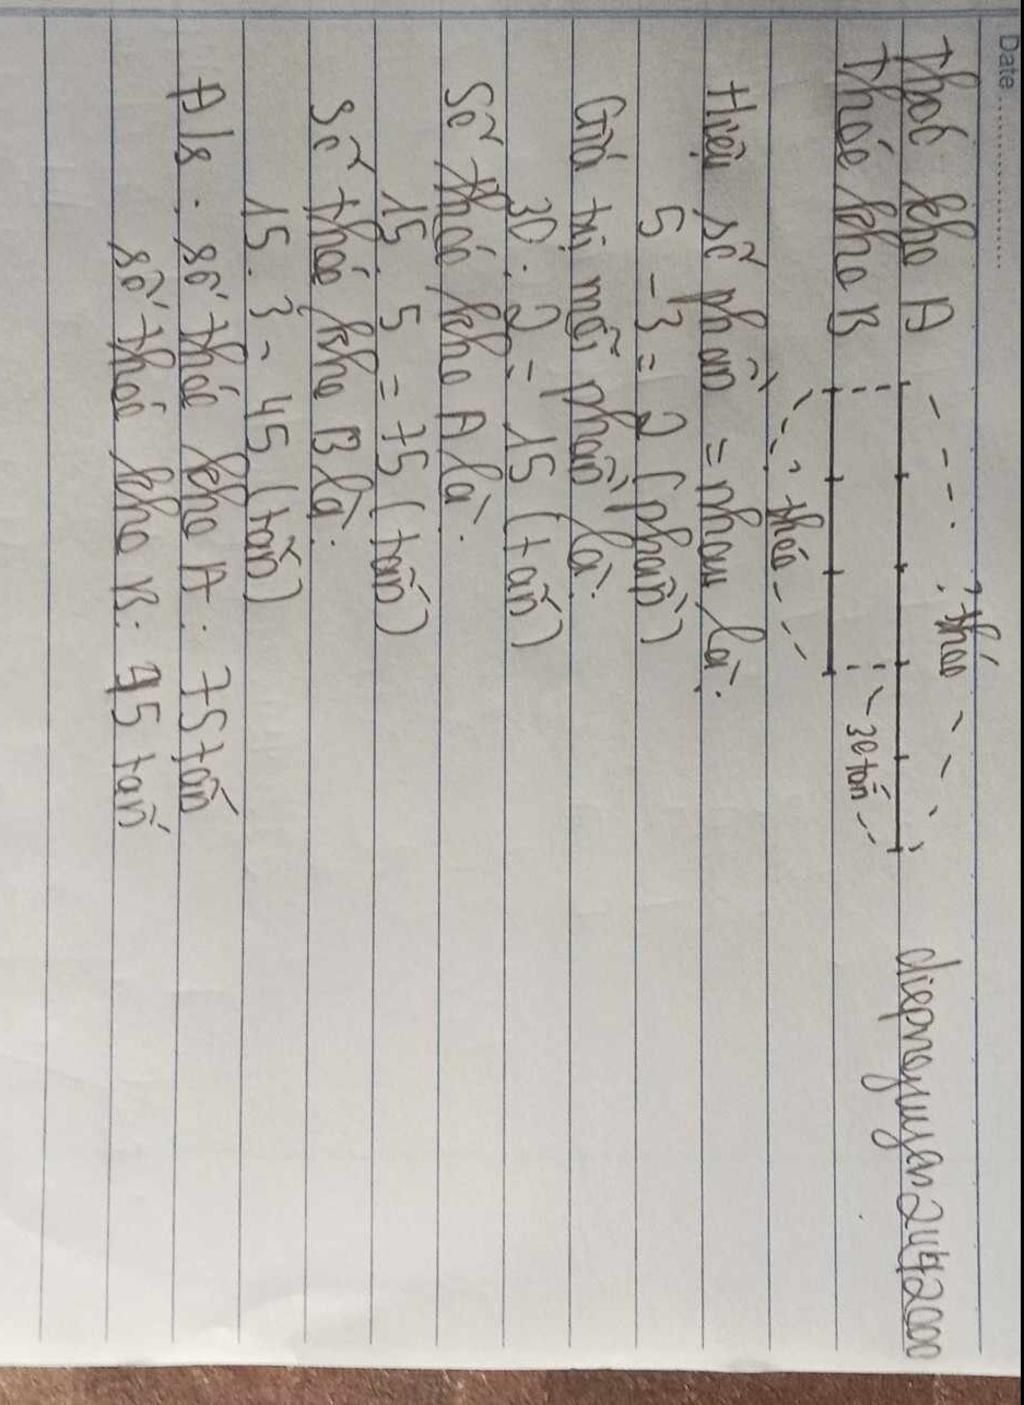 Date
? thóc
Thóc kho A
diepnguyen2442000
Thóc kho B
30 tấn
? thóc
Hiệu số phần = nhau là:
5 - 3 = 2 (phần)
Giá trị mỗi phần là:
30 : 2 = 15 (tấn)
Số thóc kho A là:
15 . 5 = 75 (tấn)
Số thóc kho B là:
15 . 3 = 45 (tấn)
Đ/s : số thóc kho A : 75 tấn
số thóc kho B : 45 tấn